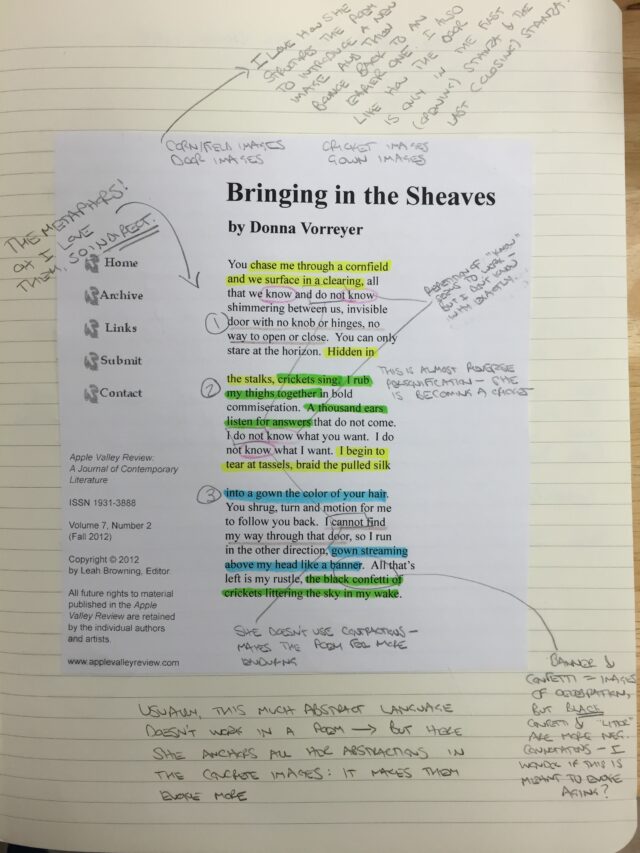 I LOVE HOW SHE
STRUCTURES THE POEM
TO INTRODUCE A NEW
IMAGE AND THEN
BOUNCE BACK TO AN
EARLIER ONE. I ALSO
LIKE HOW THE DOOR
IS ONLY IN THE FIRST
(OPENING) STANZA & THE
LAST (CLOSING) STANZA.
CORN/FIELD IMAGES
DOOR IMAGES
CRICKET IMAGES
GOWN IMAGES
THE METAPHORS!
OH I LOVE
THEM, SO INDIRECT.
Bringing in the Sheaves
by Donna Vorreyer
Home
Archive
Links
Submit
Contact
You chase me through a cornfield
and we surface in a clearing, all
that we know and do not know
shimmering between us, invisible
1 door with no knob or hinges, no
way to open or close. You can only
stare at the horizon. Hidden in
2 the stalks, crickets sing. I rub
my thighs together in bold
commiseration. A thousand ears
listen for answers that do not come.
I do not know what you want. I do
not know what I want. I begin to
tear at tassels, braid the pulled silk
3 into a gown the color of your hair.
You shrug, turn and motion for me
to follow you back. I cannot find
my way through that door, so I run
in the other direction, gown streaming
above my head like a banner. All that's
left is my rustle, the black confetti of
crickets littering the sky in my wake.
REPETITION OF "KNOW"
SEEMS TO WORK -
BUT I DON'T KNOW
WHY EXACTLY.
THIS IS ALMOST REVERSE
PERSONIFICATION - SHE
IS BECOMING A CRICKET
Apple Valley Review:
A Journal of Contemporary
Literature
ISSN 1931-3888
Volume 7, Number 2
(Fall 2012)
Copyright © 2012
by Leah Browning, Editor.
All future rights to material
published in the Apple
Valley Review are retained
by the individual authors
and artists.
www.applevalleyreview.com
SHE DOESN'T USE CONTRACTIONS -
MAKES THE POEM FEEL MORE
ENDURING
BANNER &
CONFETTI = IMAGES
OF CELEBRATION,
BUT BLACK
CONFETTI & "LITTER"
ARE MORE NEG.
CONNOTATIONS - I
WONDER IF THIS IS
MEANT TO EVOKE
AGING?
USUALLY, THIS MUCH ABSTRACT LANGUAGE
DOESN'T WORK IN A POEM → BUT HERE
SHE ANCHORS ALL HER ABSTRACTIONS IN
THE CONCRETE IMAGES: IT MAKES THEM
EVOKE MORE